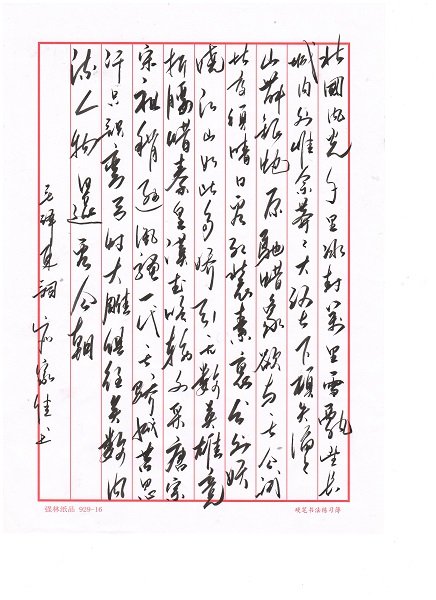 北國风光千里冰封萬里雪飄望长
城内外惟余莽々大河上下頓失滔々
山舞銀蛇原馳蜡象欲与天公试
比高須晴日看红装素裹分外妖
娆江山如此多娇引无数英雄竞
折腰惜秦皇漢武略输文采唐宗
宋祖稍逊风骚一代天骄成吉思
汗只識弯弓射大雕俱往矣数风
流人物還看今朝
毛泽東词 家佳书
强林纸品 929-16
硬笔书法练习簿